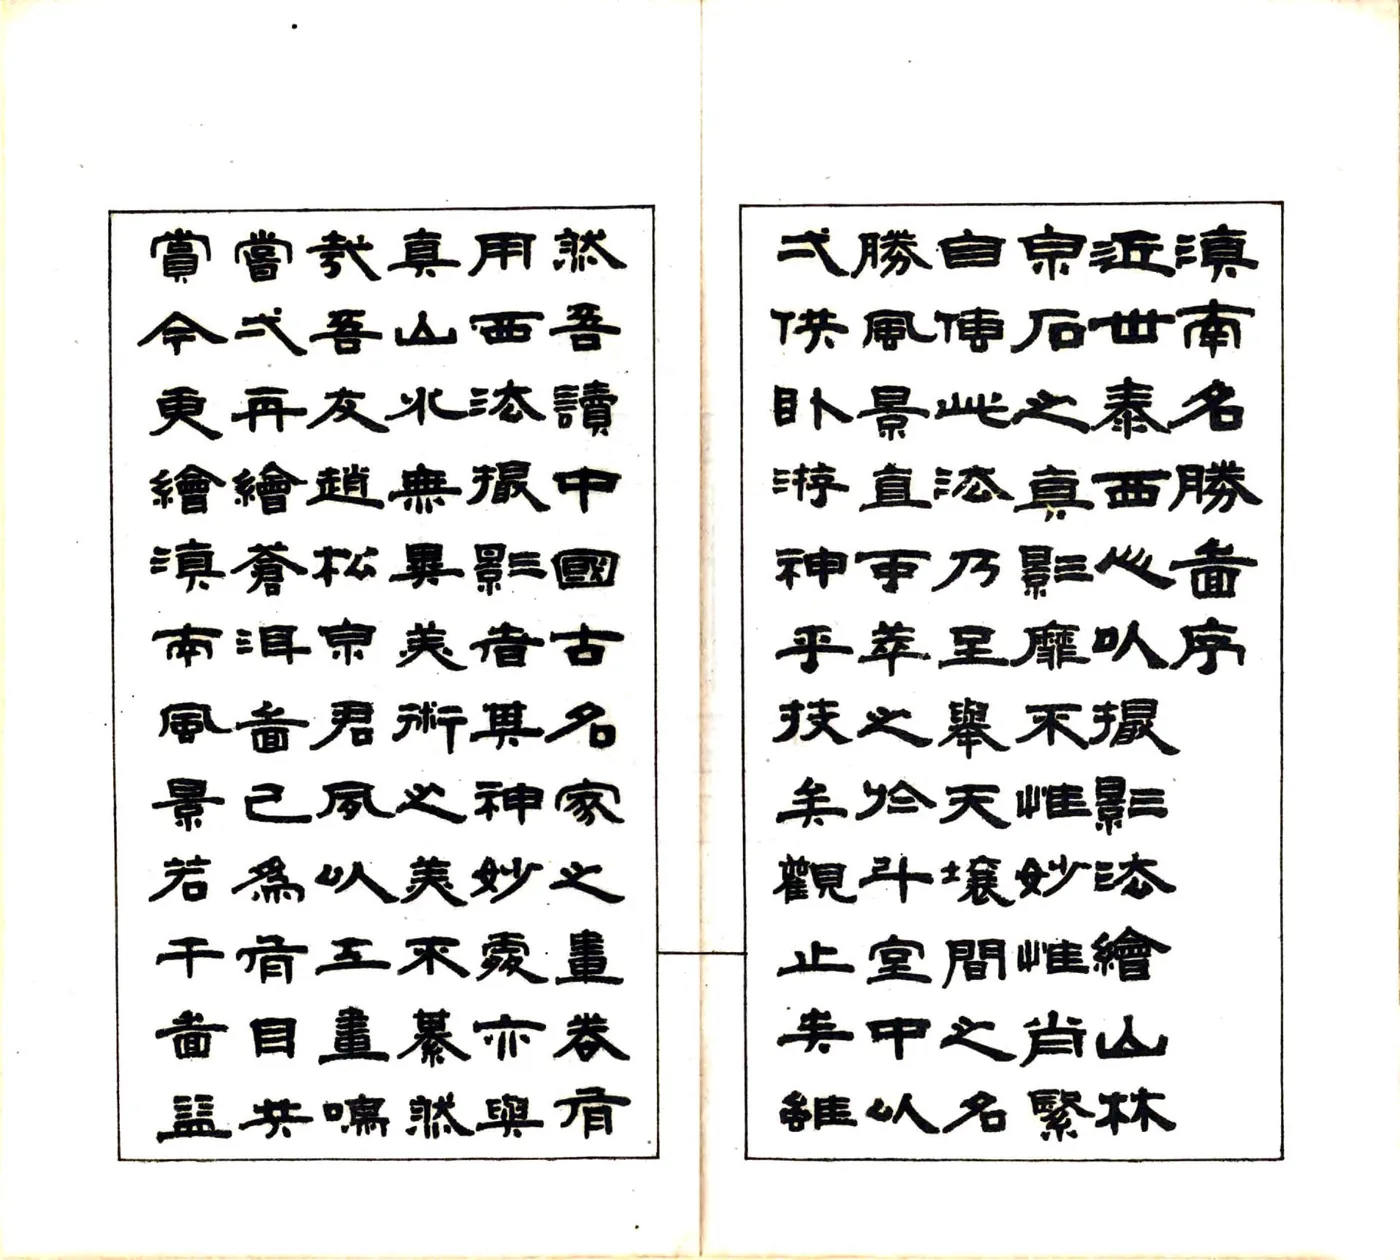 滇南名勝啚序
近世泰西心以撮影法繪山林
泉石之真影靡不惟妙惟肖繄
自傳此法乃呈舉天壤間之名
勝風景直萃之於斗室中以
弌供卧游神乎技矣觀止矣雖
然吾讀中國古名家之畫卷有
用西法撮影者其神妙處亦與
真山水無異美術之美不綦然
哉吾友趙松泉君夙以工畫鳴
嘗弌再繪蒼洱啚已為有目共
賞今更繪滇南風景若干啚益